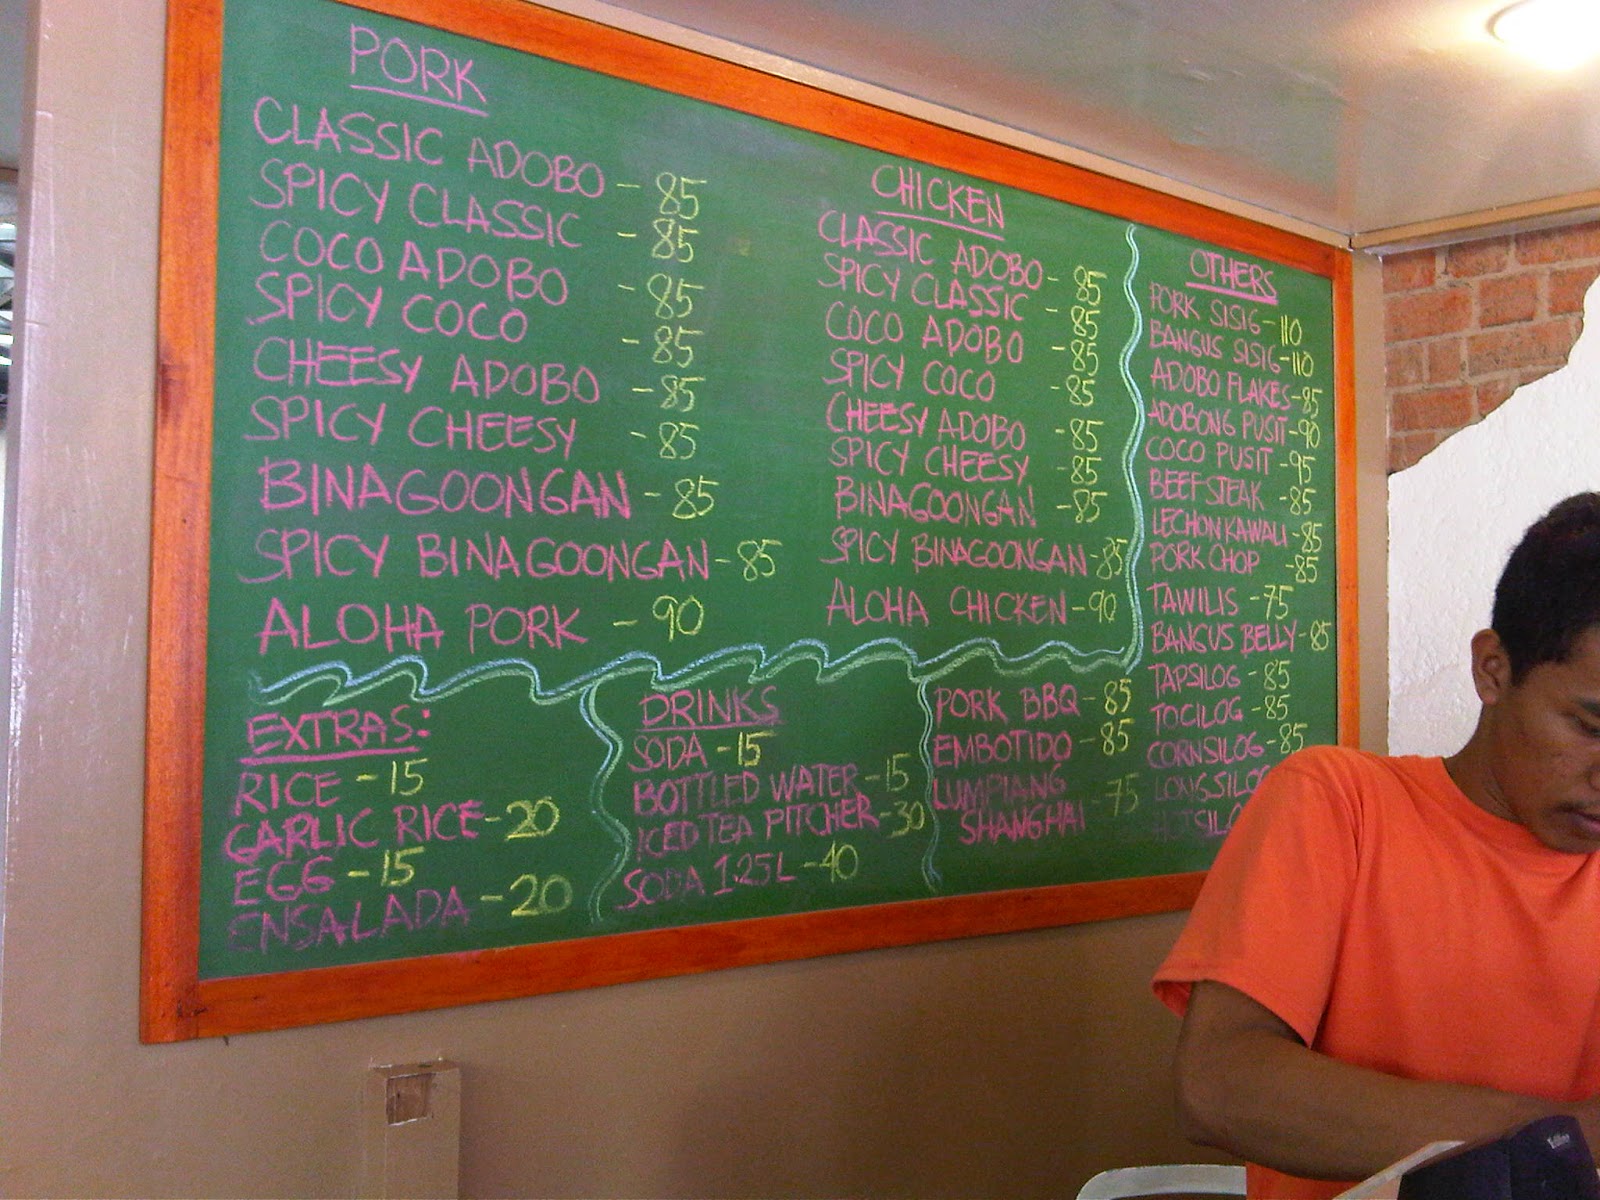 PORK
CLASSIC ADOBO - 85
SPICY CLASSIC - 85
COCO ADOBO - 85
SPICY COCO - 85
CHEESY ADOBO - 85
SPICY CHEESY - 85
BINAGOONGAN - 85
SPICY BINAGOONGAN - 85
ALOHA PORK - 90
CHICKEN
CLASSIC ADOBO - 85
SPICY CLASSIC - 85
COCO ADOBO - 85
SPICY COCO - 85
CHEESY ADOBO - 85
SPICY CHEESY - 85
BINAGOONGAN - 85
SPICY BINAGOONGAN - 85
ALOHA CHICKEN - 90
OTHERS
PORK SISIG - 110
BANGUS SISIG - 110
ADOBO FLAKES - 85
ADOBONG PUSIT - 90
COCO PUSIT - 95
BEEF STEAK - 85
LECHON KAWALI - 85
PORK CHOP - 85
TAWILIS - 75
BANGUS BELLY - 85
TAPSILOG - 85
TOCILOG - 85
CORNSILOG - 85
LONGSILOG
HOTSILO
EXTRAS:
RICE - 15
GARLIC RICE - 20
EGG - 15
ENSALADA - 20
DRINKS
SODA - 15
BOTTLED WATER - 15
ICED TEA PITCHER - 30
SODA 1.25L - 40
PORK BBQ - 85
EMBOTIDO - 85
LUMPIANG
SHANGHAI - 75